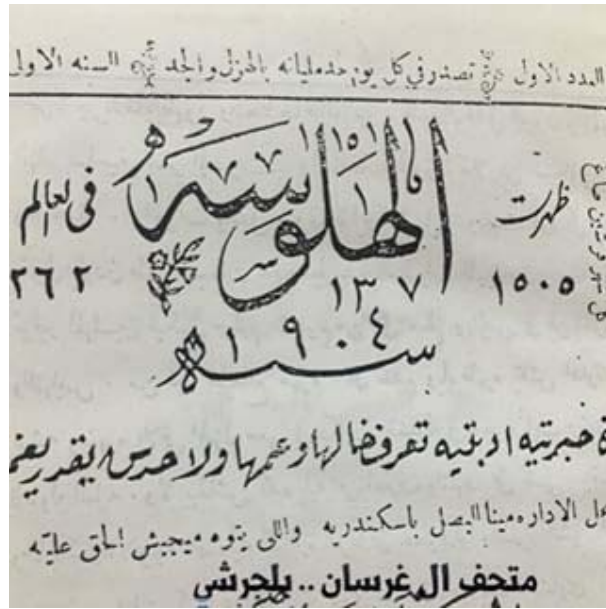 العدد الاول تصدر في كل يوم حده مليانه بالهزل والجد السنه الاولى
ظهرت الهلوسه في العالم
١٥٠٥ ١٣٧ ٢٦٢
سنه ١٩٠٤
خبريه ادبيه تعرف خالها وعمها ولا حدش يقدر
الاداره مينا البصل باسكندريه واللي يتوه ميجيش الحق عليه
متحف ال غرسان .. بلجرشي